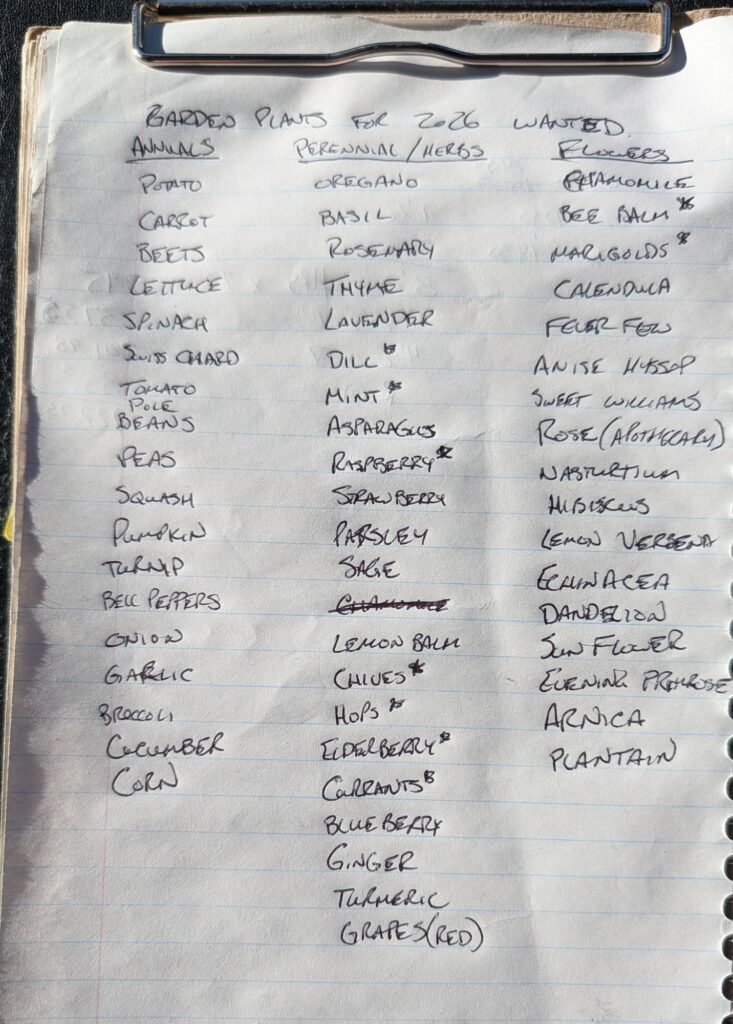 GARDEN PLANTS FOR 2026 WANTED.
ANNUALS
POTATO
CARROT
BEETS
LETTUCE
SPINACH
SWISS CHARD
TOMATO
POLE
BEANS
PEAS
SQUASH
PUMPKIN
TURNIP
BELL PEPPERS
ONION
GARLIC
BROCCOLI
CUCUMBER
CORN
PERENNIAL/HERBS
OREGANO
BASIL
ROSEMARY
THYME
LAVENDER
DILL*
MINT*
ASPARAGUS
RASPBERRY*
STRAWBERRY
PARSLEY
SAGE
CHAMOMILE
LEMON BALM
CHIVES*
HOPS*
ELDERBERRY*
CURRANTS*
BLUEBERRY
GINGER
TURMERIC
GRAPES(RED)
FLOWERS
CHAMOMILE
BEE BALM*
MARIGOLDS*
CALENDULA
FEVER FEW
ANISE HYSSOP
SWEET WILLIAMS
ROSE(APOTHECARY)
NASTURTIUM
HIBISCUS
LEMON VERBENA
ECHINACEA
DANDELION
SUNFLOWER
EVENING PRIMROSE
ARNICA
PLANTAIN